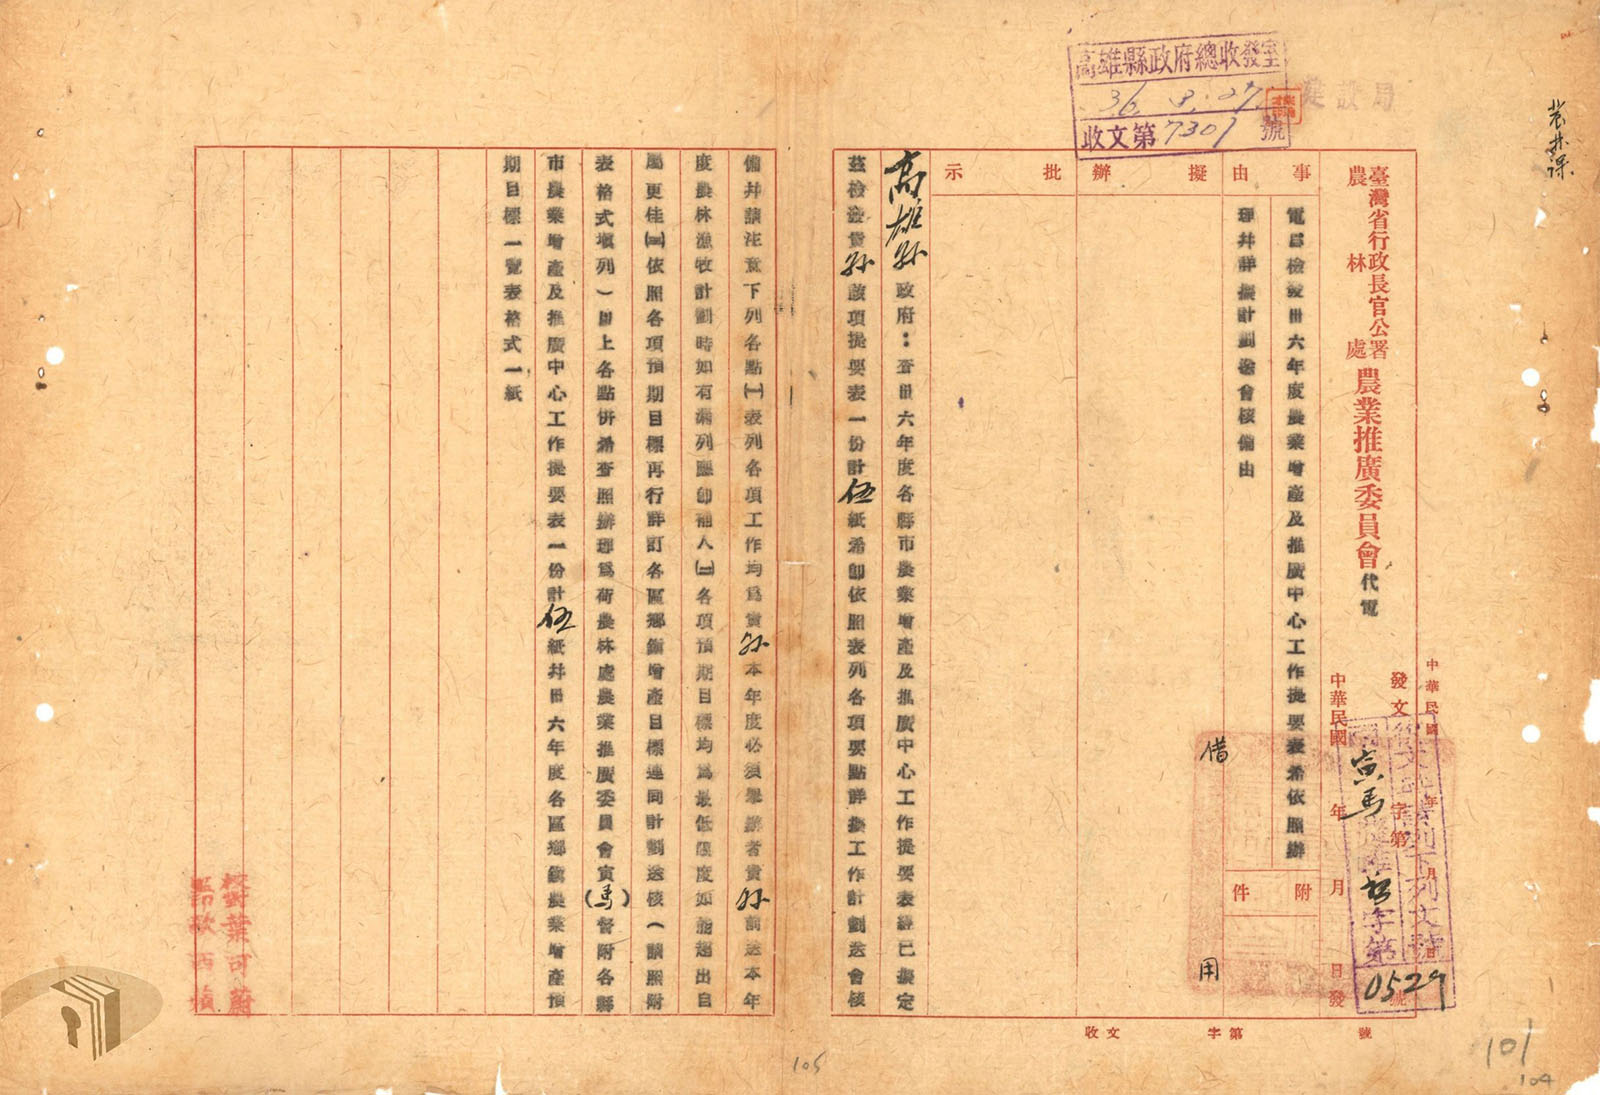 農林課
建設局
高雄縣政府總收發室
36.3.27
收文第7301號
臺灣省行政長官公署
農林處
農業推廣委員會代電
中華民國 年 月 日
發文 字第 號
中華民國 年 月 日發
寅馬
字第
0529
事由
電為檢發卅六年度農業增產及推廣中心工作提要表希依照辦
理并詳擬計劃送會核備由
附件
擬辦
批示
借用
高雄縣政府：查卅六年度各縣市農業增產及推廣中心工作提要表經已擬定
茲檢發貴縣該項提要表一份計伍紙希即依照表列各項要點詳擬工作計劃送會核
備并請注意下列各點(一)表列各項工作均為貴縣本年度必須舉辦者貴縣前送本年
度農林漁牧計劃時如有漏列應即補入(二)各項預期目標均為最低限度如能超出自
屬更佳(三)依照各項預期目標再行詳訂各區鄉鎮增產目標連同計劃送核(請照附
表格式填列)以上各點併希查照辦理為荷農林處農業推廣委員會寅(馬)督附各縣
市農業增產及推廣中心工作提要表一份計伍紙并卅六年度各區鄉鎮農業增產預
期目標一覽表格式一紙
校對葉可蔚
監印歐酒萍
收文 字第 號
105
101
104